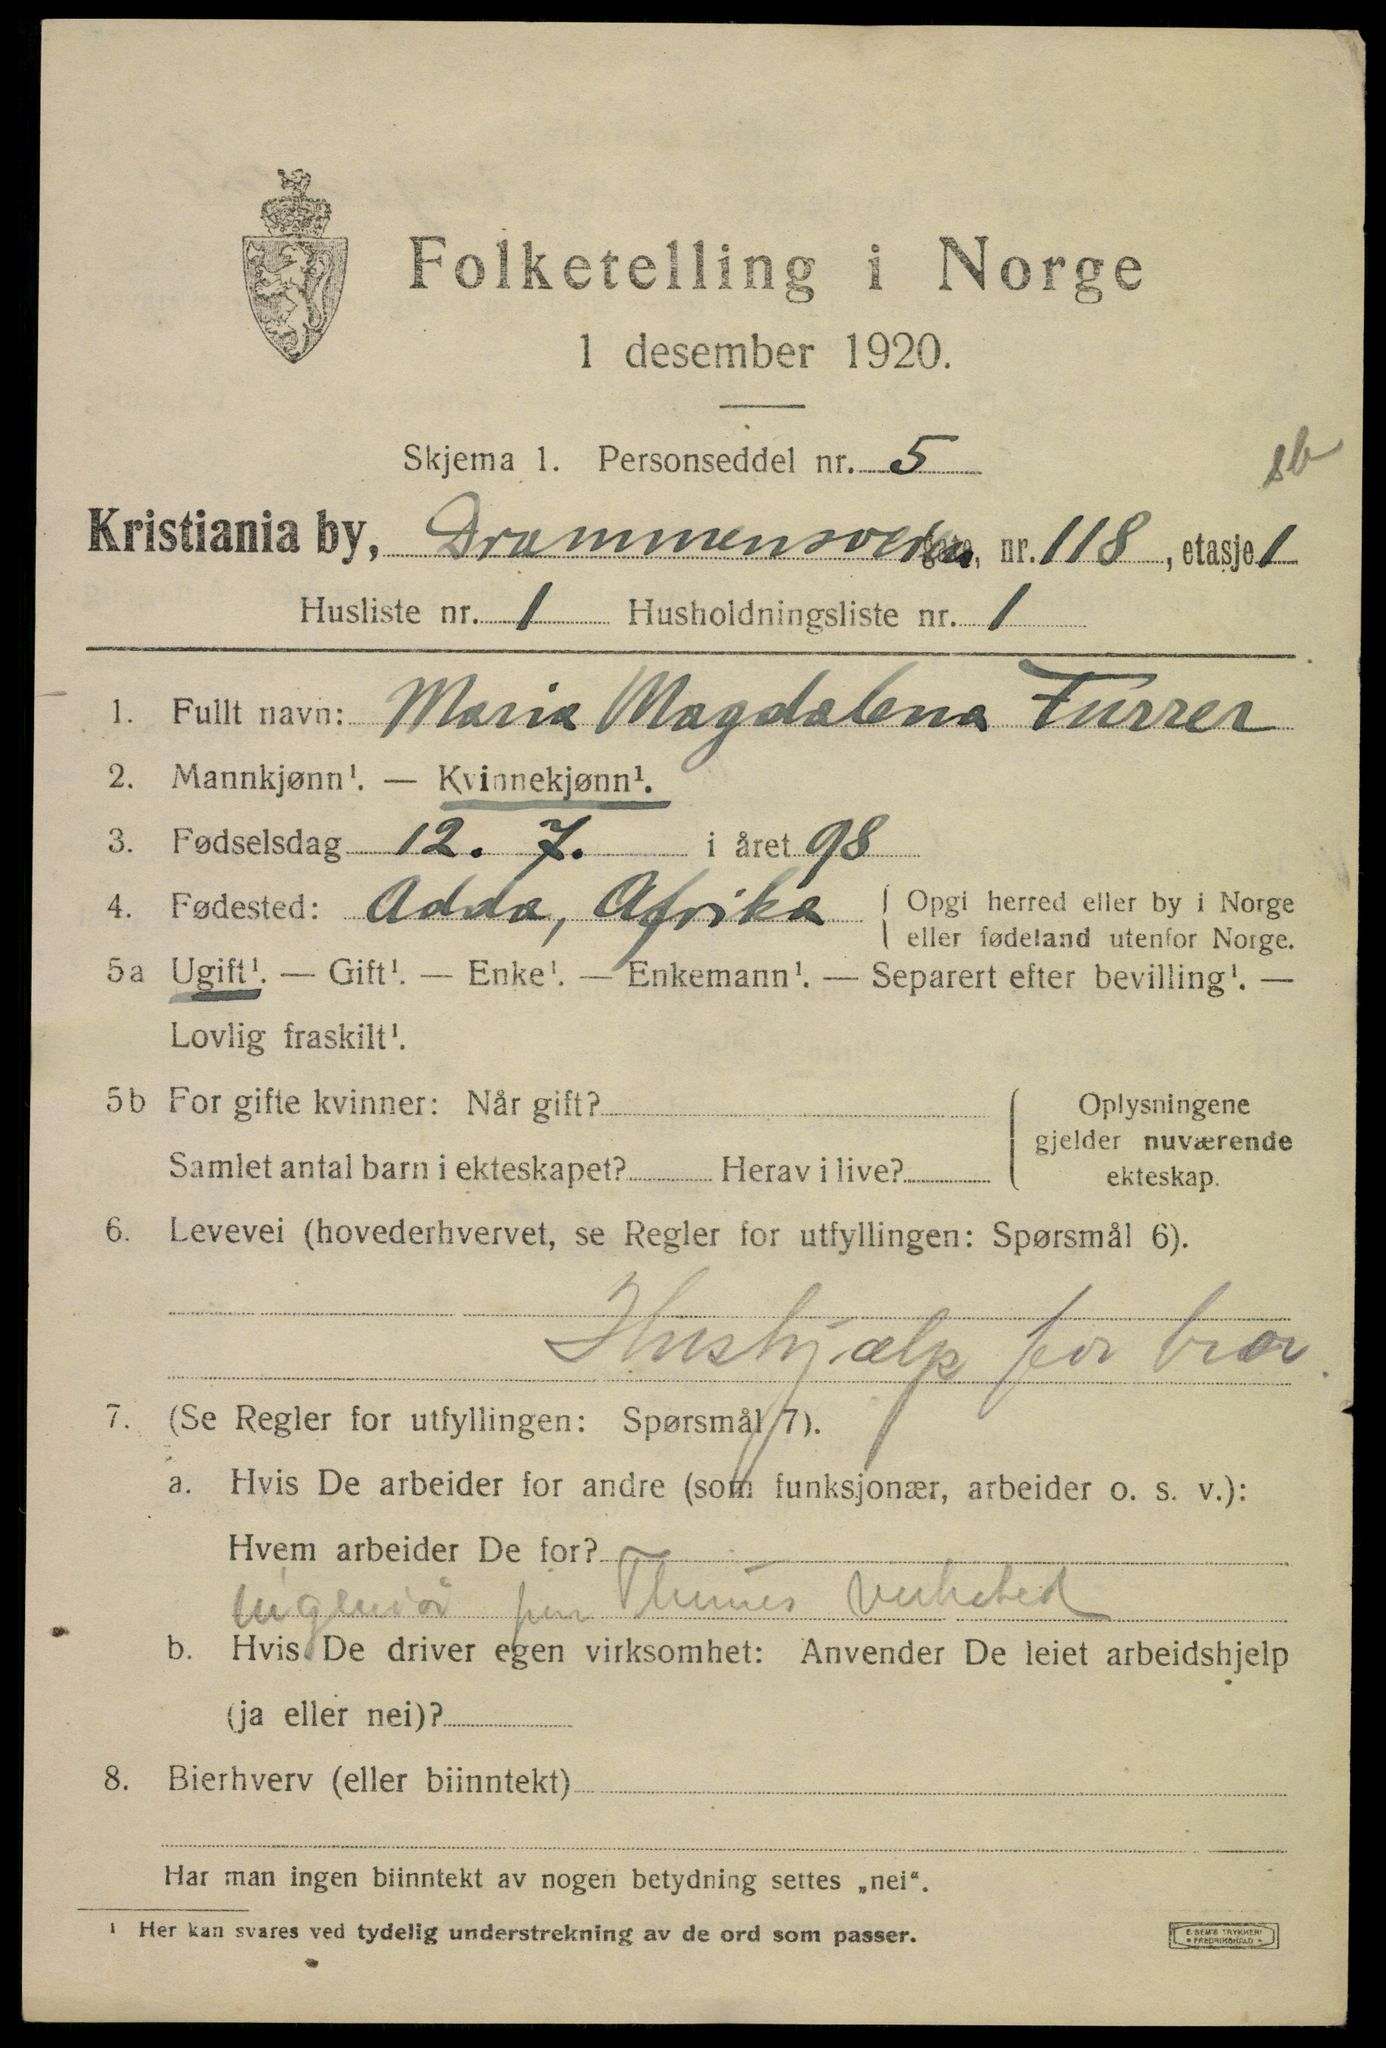 Folketelling i Norge
1 desember 1920.
Skjema 1. Personseddel nr. 5
sb
Kristiania by, Drammensveien gate, nr. 118, etasje 1
Husliste nr. 1 Husholdningsliste nr. 1
1. Fullt navn: Maria Magdalena Furrer
2. Mannkjønn¹. — Kvinnekjønn¹.
3. Fødselsdag 12. 7. i året 98
4. Fødested: Adda, Afrika { Opgi herred eller by i Norge
eller fødeland utenfor Norge.
5a Ugift¹. — Gift¹. — Enke¹. — Enkemann¹. — Separert efter bevilling¹. —
Lovlig fraskilt¹.
5b For gifte kvinner: Når gift? { Oplysningene
gjelder nuværende
Samlet antal barn i ekteskapet? Herav i live? ekteskap.
6. Levevei (hovederhvervet, se Regler for utfyllingen: Spørsmål 6).
Hushjælp for bror
7. (Se Regler for utfyllingen: Spørsmål 7).
a. Hvis De arbeider for andre (som funksjonær, arbeider o. s. v.):
Hvem arbeider De for?
Ingeniør Thunes verksted
b. Hvis De driver egen virksomhet: Anvender De leiet arbeidshjelp
(ja eller nei)?
8. Bierhverv (eller biinntekt)
Har man ingen biinntekt av nogen betydning settes „nei“.
¹ Her kan svares ved tydelig understrekning av de ord som passer.
E. SEM'S TRYKKERI
FREDRIKSHALD